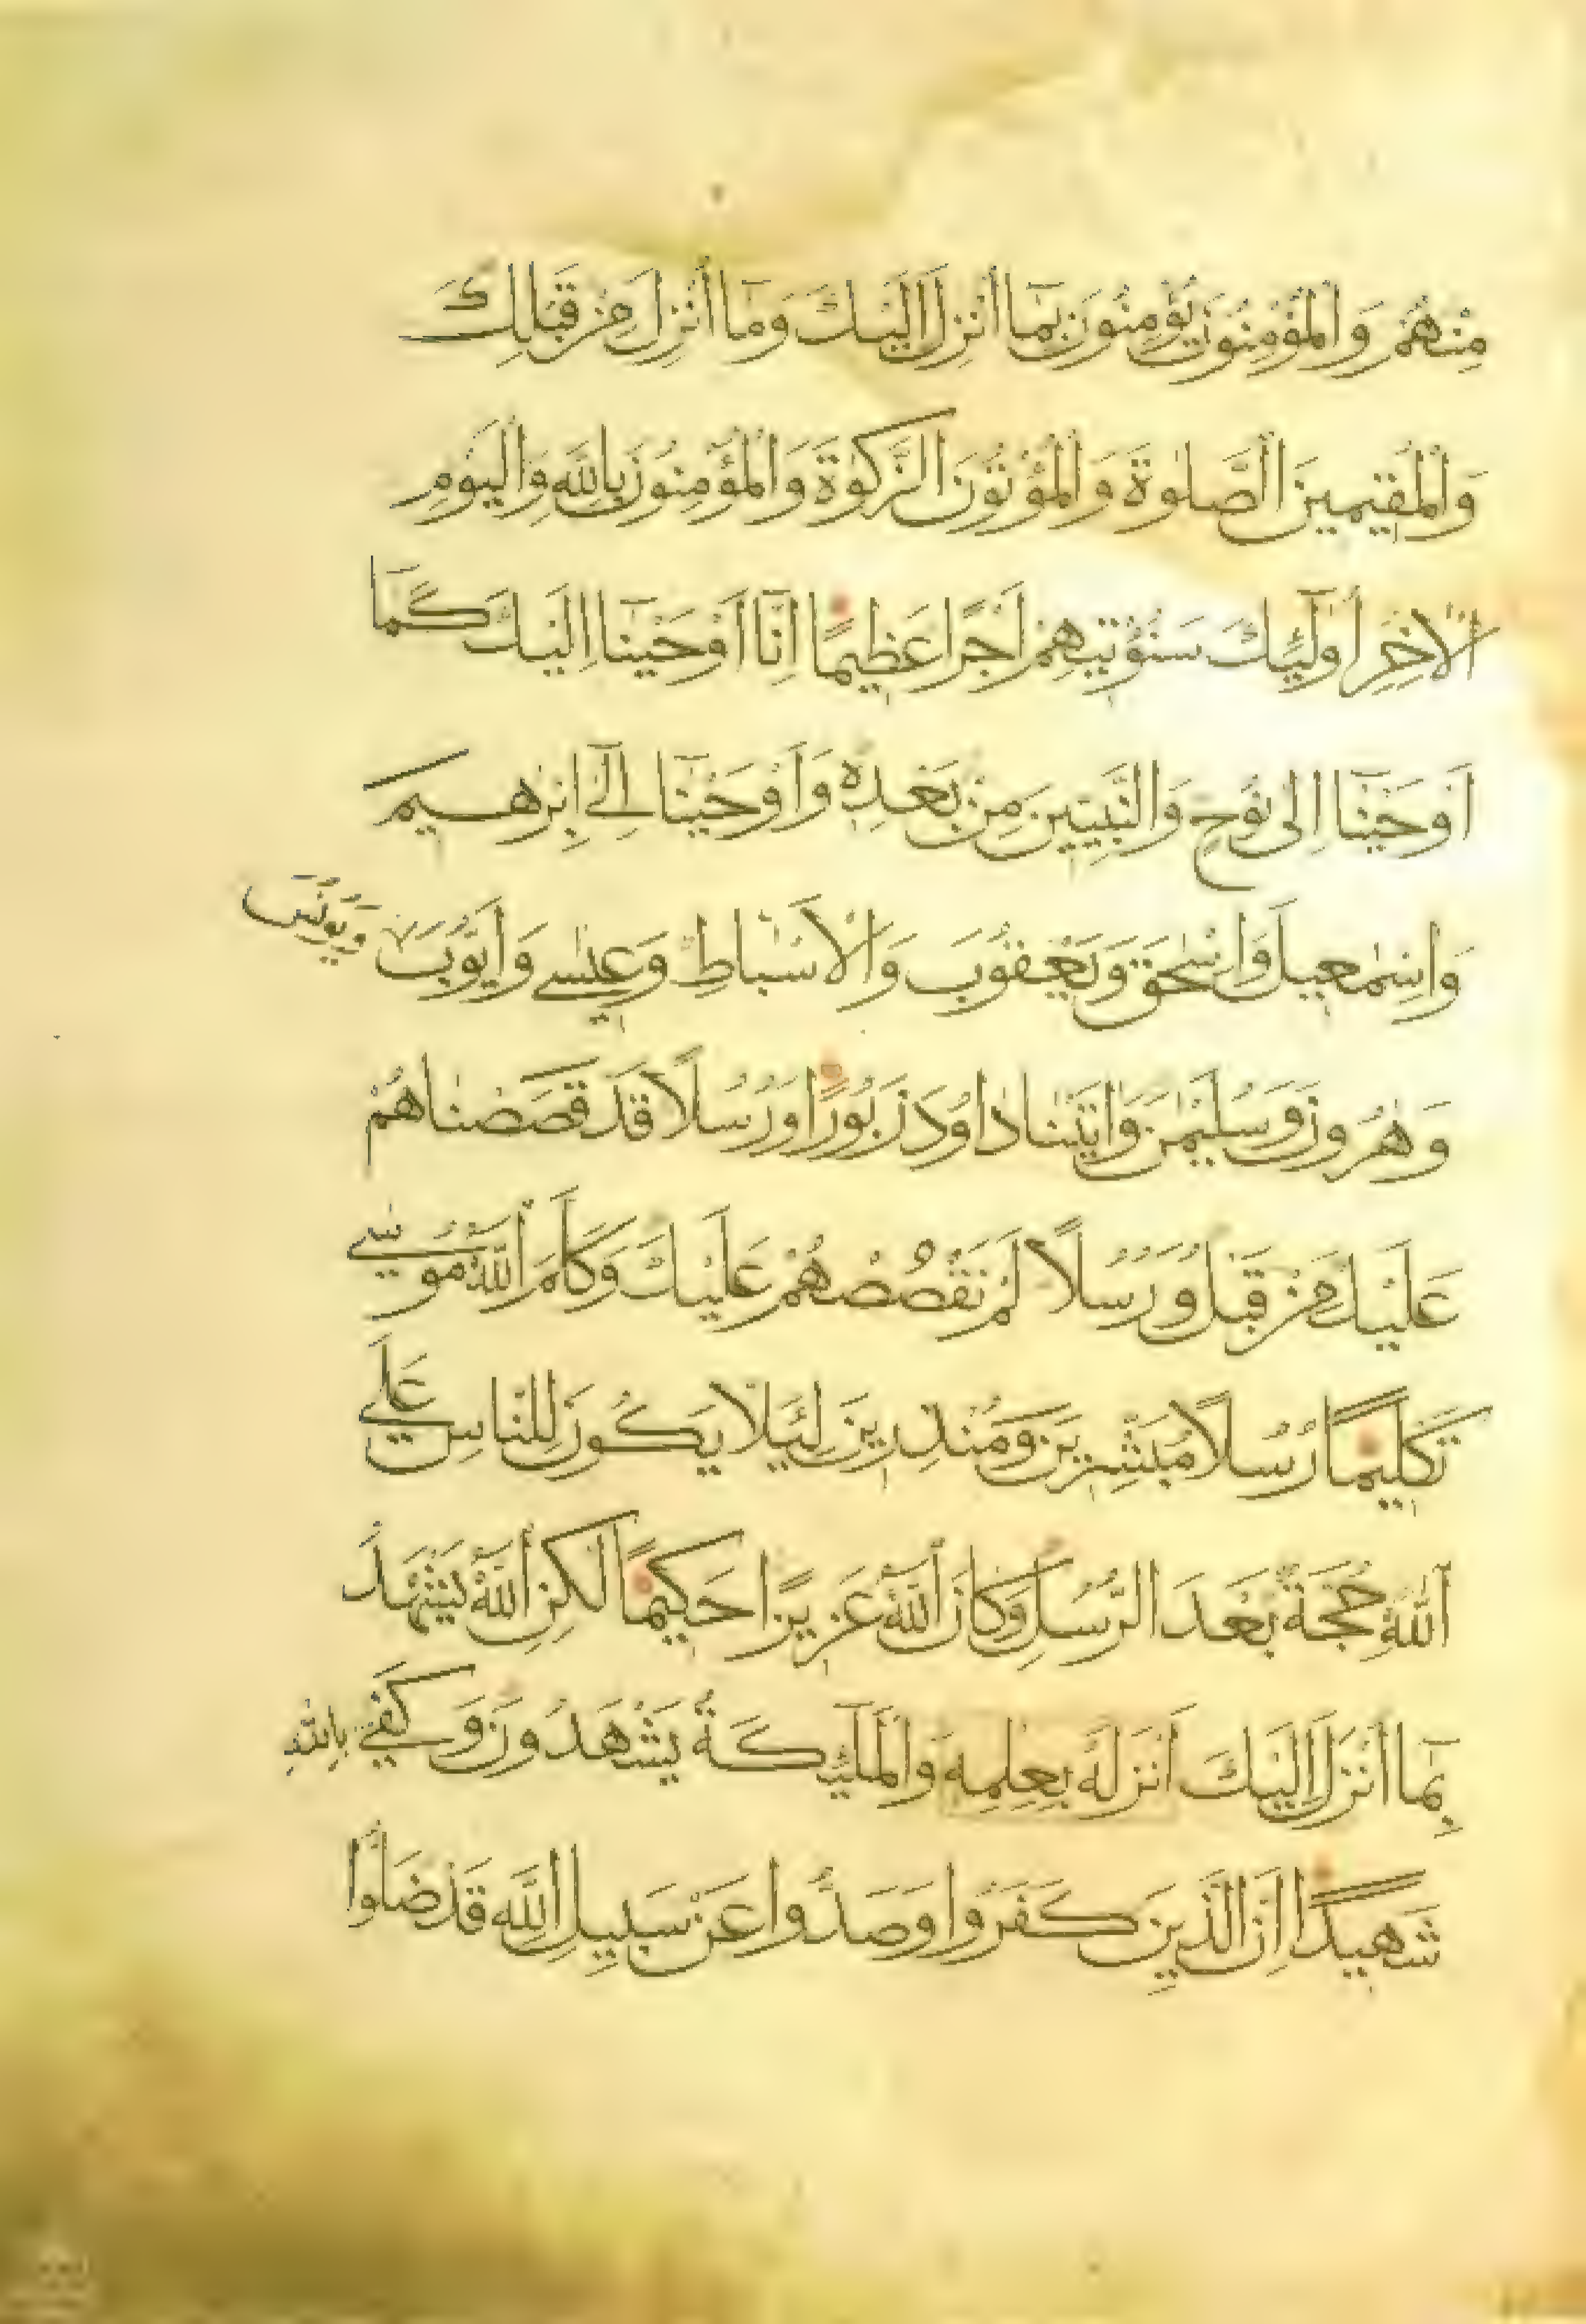 مِنْهُمْ وَالْمُؤْمِنُونَ يُؤْمِنُونَ بِمَا أُنْزِلَ إِلَيْكَ وَمَا أُنْزِلَ مِنْ قَبْلِكَ
وَالْمُقِيمِينَ الصَّلٰوةَ وَالْمُؤْتُونَ الزَّكٰوةَ وَالْمُؤْمِنُونَ بِاللّٰهِ وَالْيَوْمِ
الْاٰخِرِ أُولٰئِكَ سَنُؤْتِيهِمْ أَجْرًا عَظِيمًا اِنَّا أَوْحَيْنَا اِلَيْكَ كَمَا
أَوْحَيْنَا اِلٰى نُوحٍ وَالنَّبِيّينَ مِنْ بَعْدِهِ وَأَوْحَيْنَا اِلٰى اِبْرٰهِيمَ
وَاِسْمٰعِيلَ وَاِسْحٰقَ وَيَعْقُوبَ وَالْأَسْبَاطِ وَعِيسٰى وَأَيُّوبَ وَيُونُسَ
وَهٰرُونَ وَسُلَيْمٰنَ وَاٰتَيْنَا دَاوُدَ زَبُورًا وَرُسُلًا قَدْ قَصَصْنَاهُمْ
عَلَيْكَ مِنْ قَبْلُ وَرُسُلًا لَمْ نَقْصُصْهُمْ عَلَيْكَ وَكَلَّمَ اللّٰهُ مُوسٰى
تَكْلِيمًا رُسُلًا مُبَشِّرِينَ وَمُنْذِرِينَ لِئَلَّا يَكُونَ لِلنَّاسِ عَلَى
اللّٰهِ حُجَّةٌ بَعْدَ الرُّسُلِ وَكَانَ اللّٰهُ عَزِيزًا حَكِيمًا لٰكِنِ اللّٰهُ يَشْهَدُ
بِمَا أَنْزَلَ إِلَيْكَ أَنْزَلَهُ بِعِلْمِهِ وَالْمَلٰئِكَةُ يَشْهَدُونَ وَكَفٰى بِاللّٰهِ
شَهِيدًا اِنَّ الَّذِينَ كَفَرُوا وَصَدُّوا عَنْ سَبِيلِ اللّٰهِ قَدْ ضَلُّوا